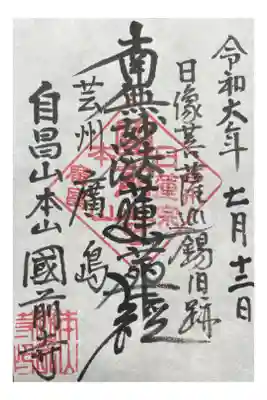 令和六年 七月十二日
日像菩薩巡錫旧跡
南無妙法蓮華経
芸州廣島
自昌山本山 國前寺
日蓮宗
本山